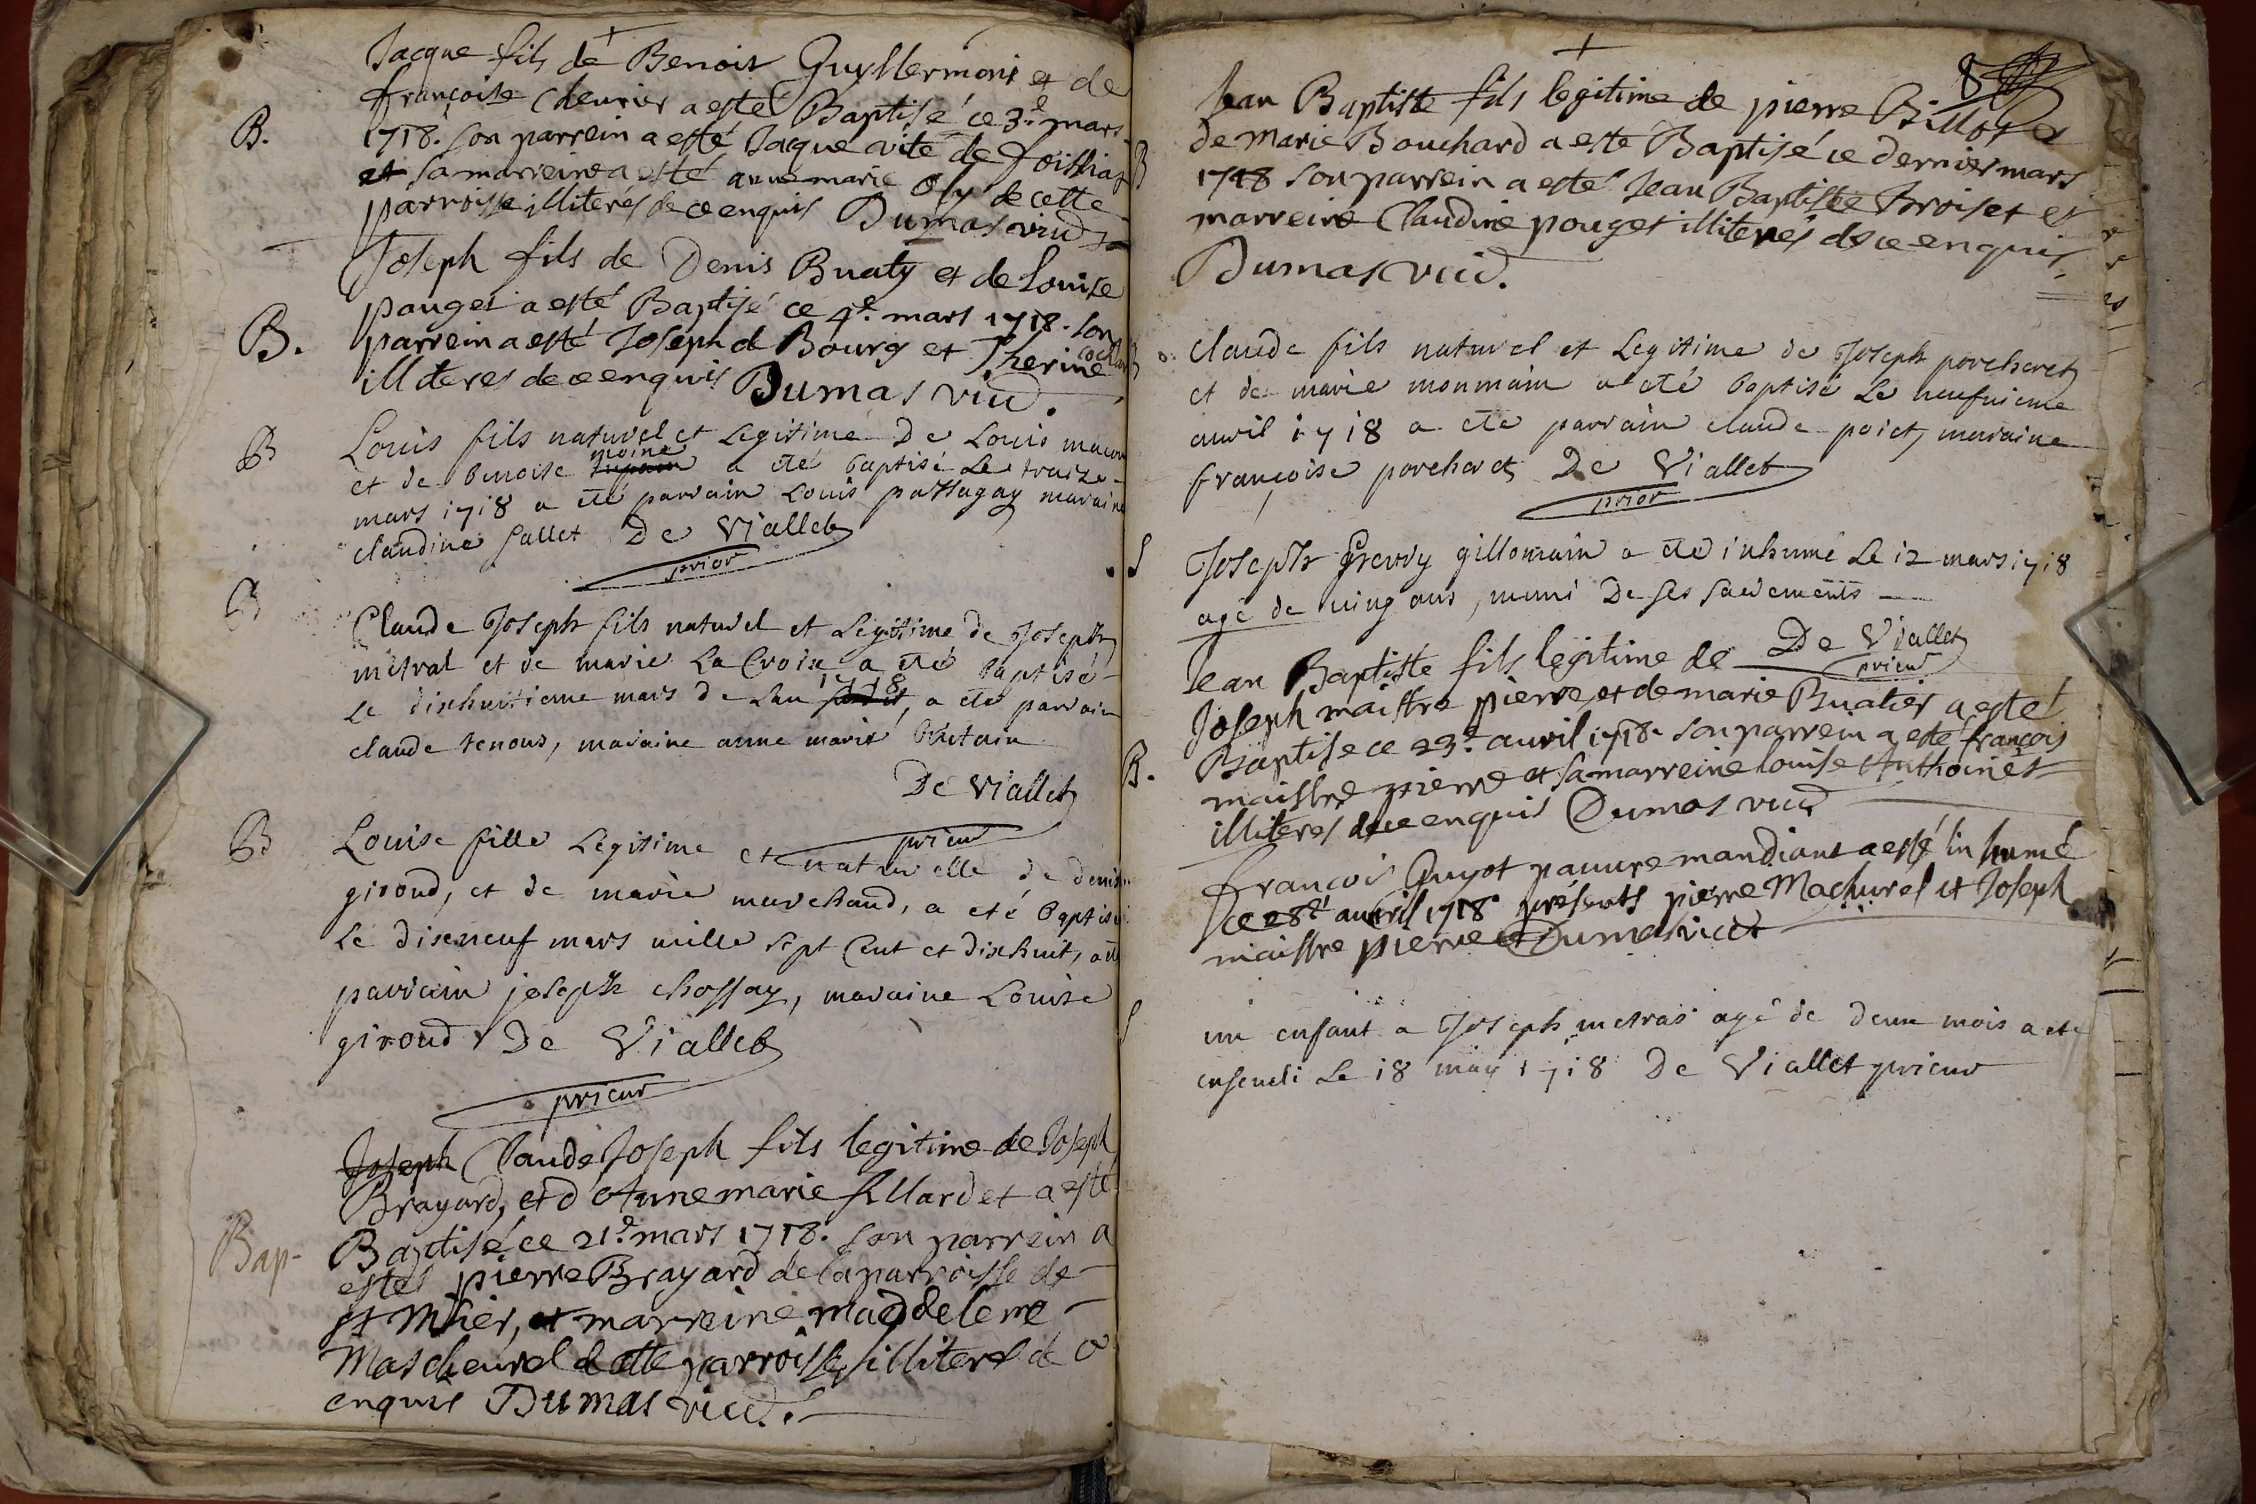 Jacque fils de Benoit Guyllermont et de
françoise Chevrier a esté Baptisé ce 3e. mars
B.
1718. son parrein a esté Jaque vite de foissiat
et sa marreine a esté anne marie Oly de cette
parroisse illiterés de ce enquis Dumas vicd.
Joseph fils de Denis Buaty et de Louise
pouget a esté Baptisé ce 4e. mars 1718. son
B.
parrein a esté Joseph d Bourg et Therine
illiteres de ce enquis Dumas vicd.
B
Louis fils naturel et Legitime De Louis macon
et de benoise moine a eté baptisé Le traize
mars 1718 a eté parrain Louis passagay maraine
claudine fallet De Viallet
prior
B
Claude Joseph fils naturel et Legitime de Joseph
metral et de marie La Croix a eté baptisé
Le dixhuitieme mars de Lan 1718, a eté parrain
claude renoud, maraine anne marie
De Viallet
prieur
B
Louise fille Legitime et naturelle de denis
giroud, et de marie marchand, a eté baptisée
Le diseneuf mars mille sept Cent et dixhuit, a eté
parrain joseph chossay, maraine Louise
giroud De Viallet
prieur
Joseph Claude Joseph fils legitime de Joseph
Brayard, et d'Anne marie fillardet a esté
Bap-
Baptisé ce 21e. mars 1718. son parrein a
esté pierre Brayard de la parroisse de
et marreine maddelene
Mascheurel de cette parroisse, illiteré de ce
enquis Dumas vicd.
8
Jean Baptiste fils legitime de pierre Billot et
de Marie Bouchard a esté Baptisé ce dernier mars
B
1718 son parrein a esté Jean Baptiste Broiset et
marreine Claudine pouget illiterés de ce enquis
Dumas vicd.
B
Claude fils naturel et Legitime de Joseph porcheret
et de marie monmain a eté baptisé Le neufuieme
auril 1718 a eté parrain claude poict, maraine
françoise porcheret De Viallet
prior
S
Joseph Grevvy gillomain a eté inhumé Le 12 mars 1718
agé de uing ans, muni De ses sacrements
De Viallet
prieur
Jean Baptiste fils legitime de
Joseph maistre pierre, et de marie Buatier a esté
B.
Baptise ce 23e. auril 1718. son parrein a esté françois
maistre pierre et sa marreine louise Anthoinet
illiteres de ce enquis Dumas vicd
françois Guyot pauure mandiant a esté inhumé
ce 28e auril 1718. présents pierre Machurel et Joseph
maistre pierre Dumas vicd
S
un enfant a Joseph metras agé de deux mois a eté
enseueli Le 18 may 1718 De Viallet prieur